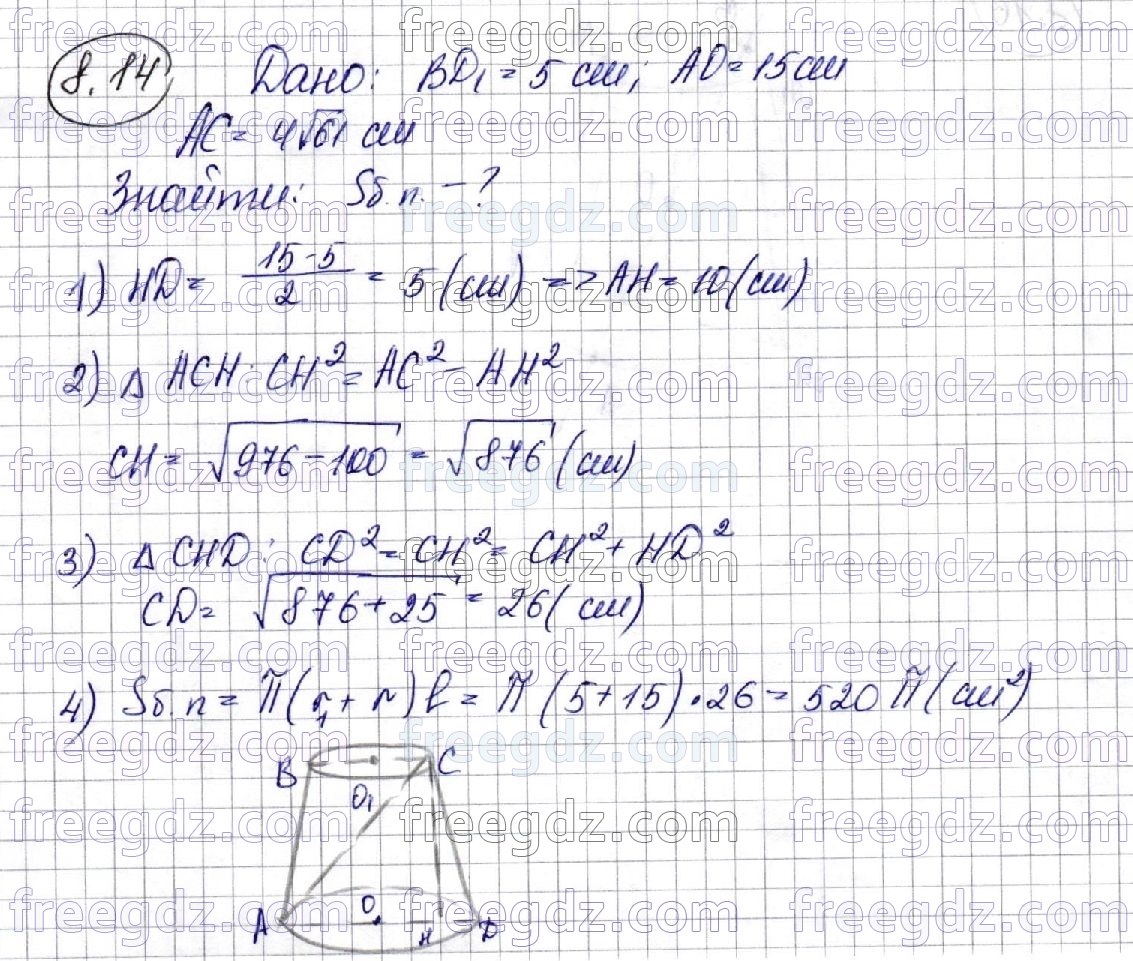 8.14
Дано: BO₁ = 5 см; AO = 15 см
AC = 4√61 см
Знайти: Sб.п. - ?
1) HD = (15-5)/2 = 5 (см) => AH = 10 (см)
2) Δ ACH: CH² = AC² - AH²
CH = √(976-100) = √876 (см)
3) Δ CHD: CD² = CH² = CH² + HD²
CD = √(876+25) = 26 (см)
4) Sб.п = π(r₁ + r) l = π (5+15)·26 = 520 π (см²)
B C
O₁
A O H D
freegdz.com